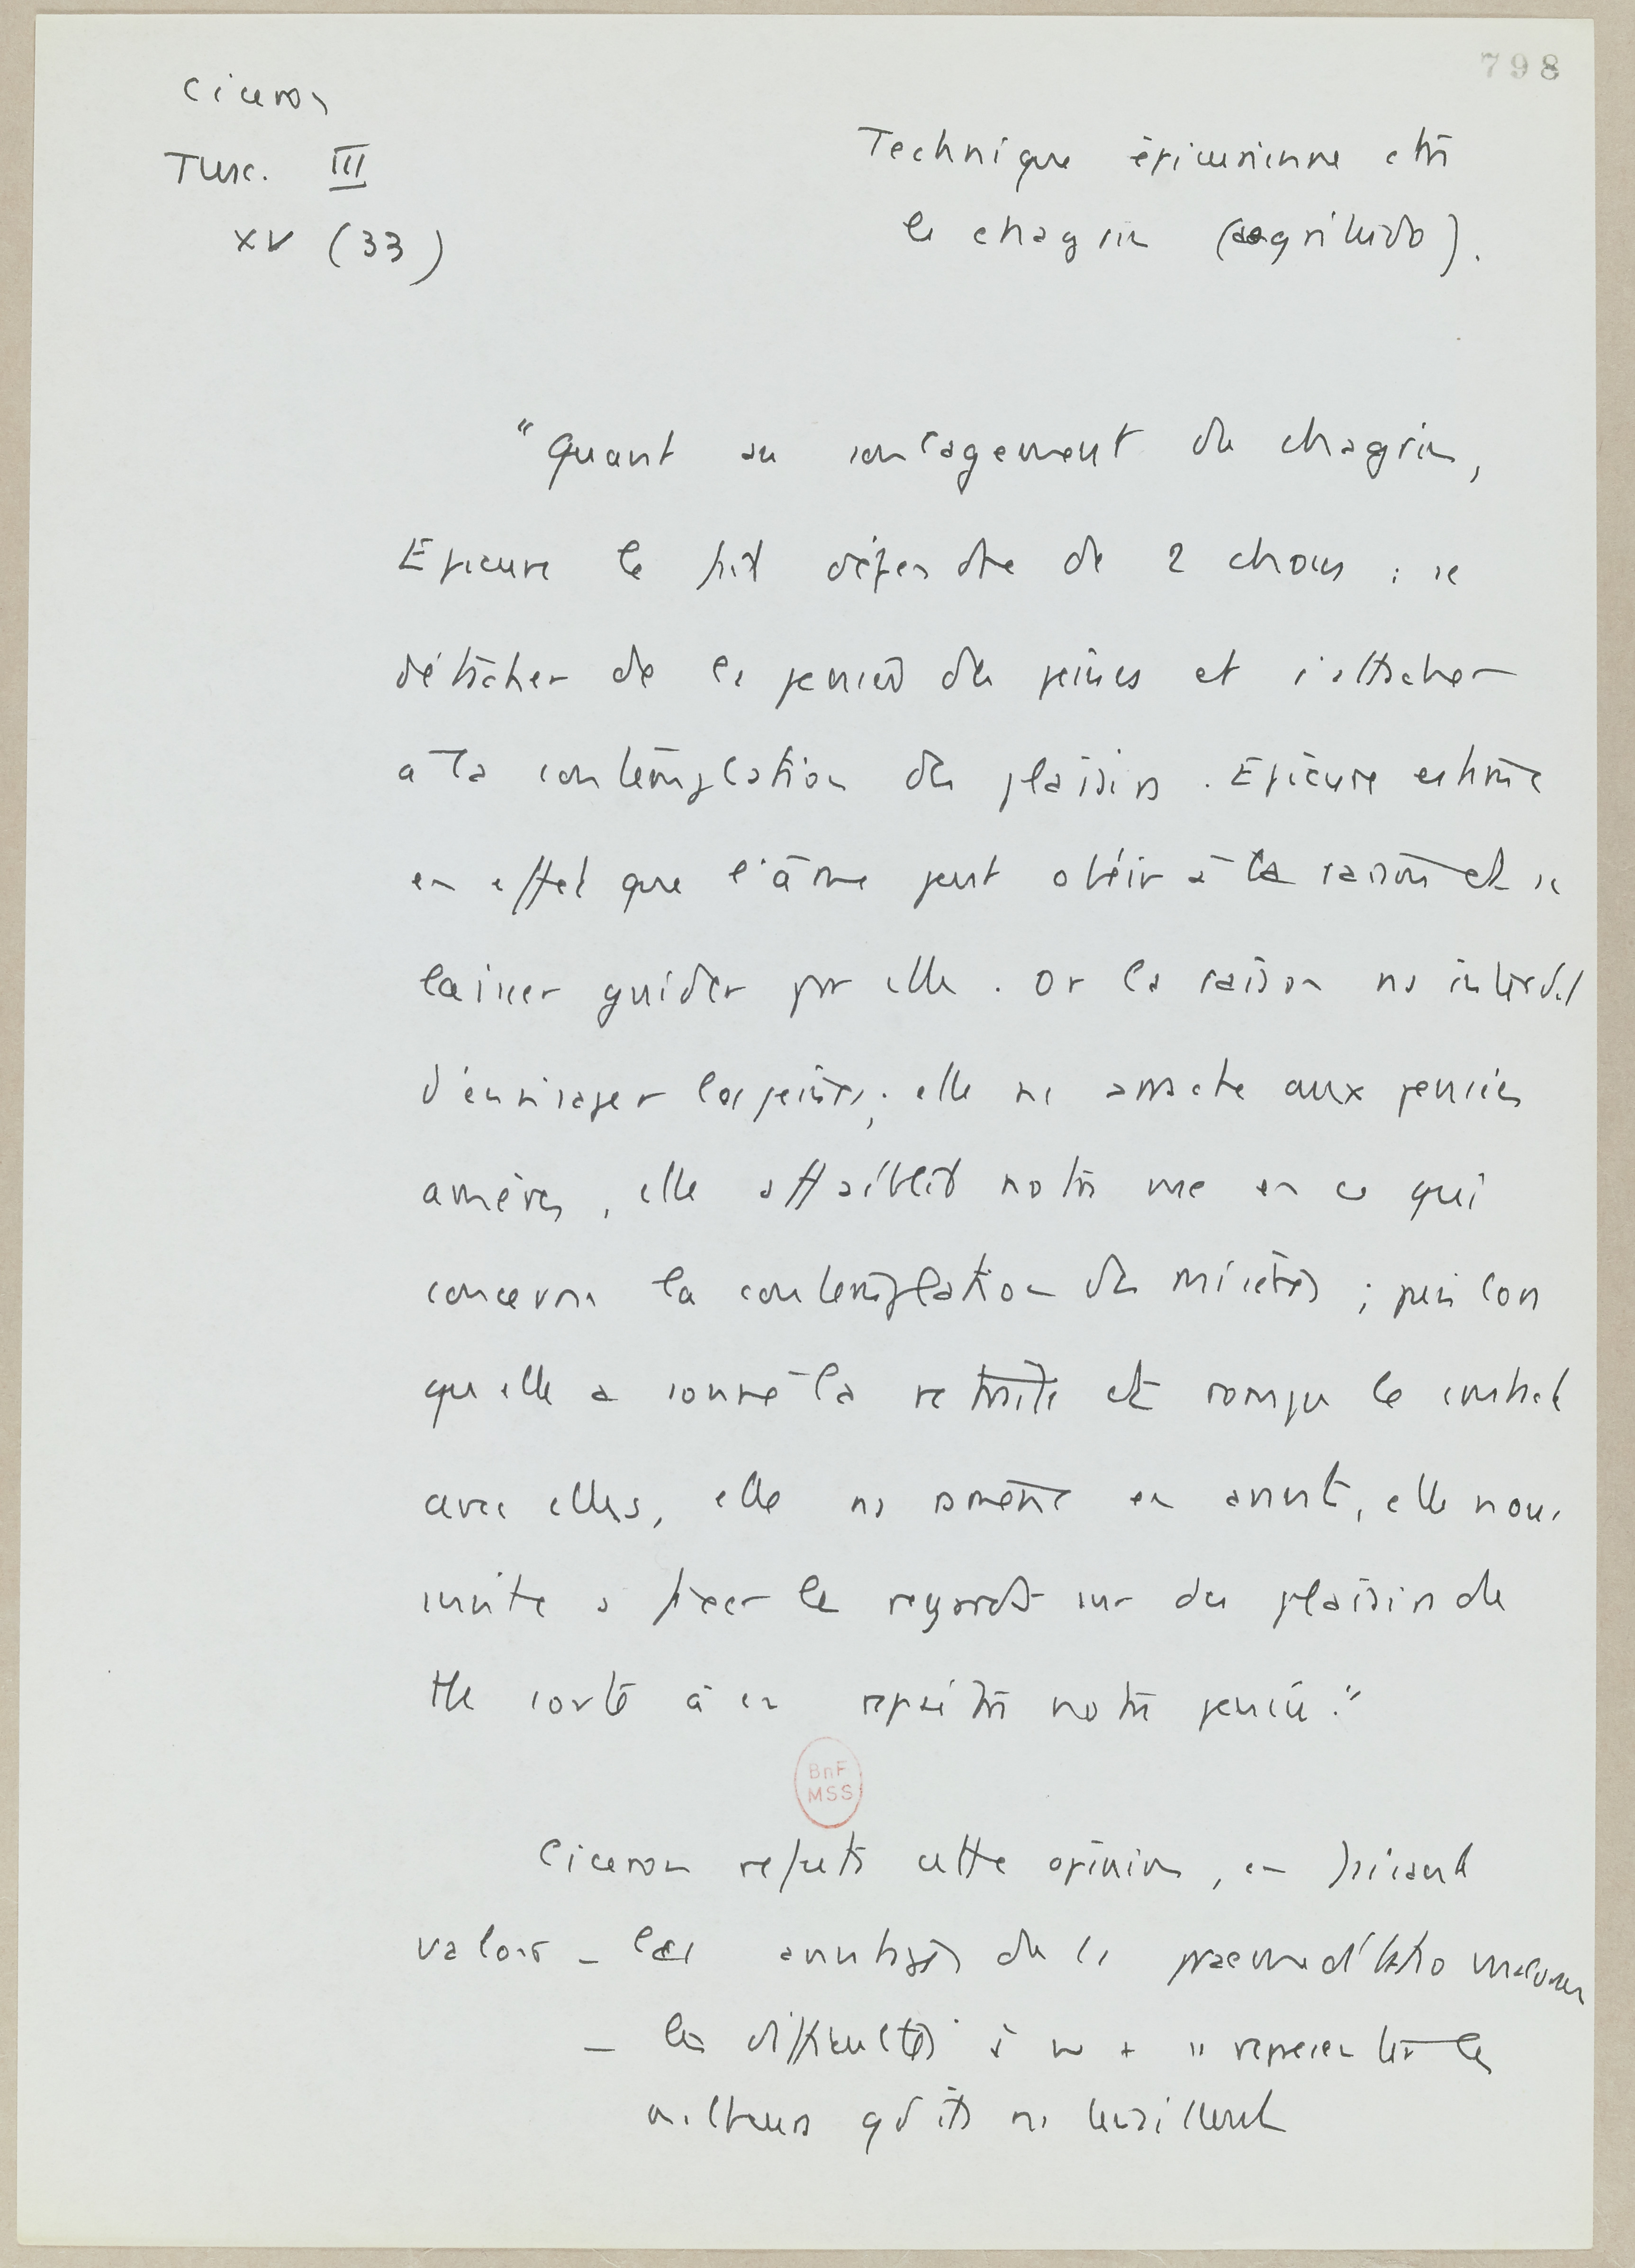 798
Ciceron
Tusc. III
XV (33)
Technique épicurienne ctre
le chagrin (aegritudo).
"Quant au soulagement du chagrin,
Epicure le fait dépendre de 2 choses : se
détacher de la pensée des peines et s'attacher
a la contemplation des plaisirs. Epicure estime
en effet que l'âme peut obéir à la raison et se
laisser guider par elle. Or la raison ns interdit
d'envisager les peines; elle ns arrache aux pensées
amères, elle affaiblit notre vue en ce qui
concerne la contemplation des misères ; puis lors
qu'elle a sonné la retraite et rompu le contact
avec elles, elle ns ramène en avant, elle nous
invite a fixer le regard sur des plaisirs de
tte sorte à en repaître notre pensée."
BnF
MSS
Ciceron refute cette opinion, en faisant
valoir - les avantages de la praemeditatio malorum
- les difficultés à ne + se representer les
malheurs qd ils ns